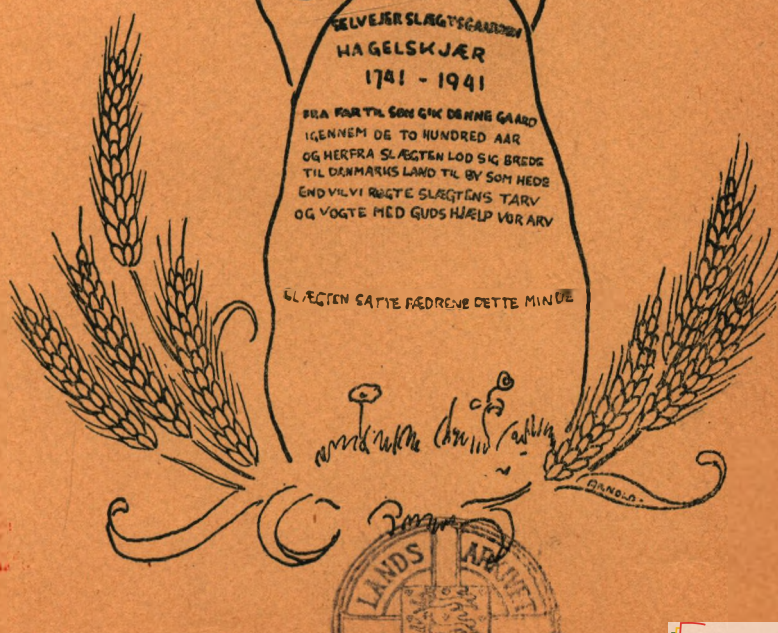 SELVEJERSLÆGTSGAARDEN
HAGELSKJÆR
1741 - 1941
FRA FAR TIL SØN GIK DENNE GAARD
IGENNEM DE TO HUNDRED AAR
OG HERFRA SLÆGTEN LOD SIG BREDE
TIL DANMARKS LAND TIL BY SOM HEDE
END VIL VI RØGTE SLÆGTENS TARV
OG VOGTE MED GUDS HJÆLP VOR ARV
SLÆGTEN SATTE FÆDRENE DETTE MINDE
ARNOLD.
LANDS ARKIVET